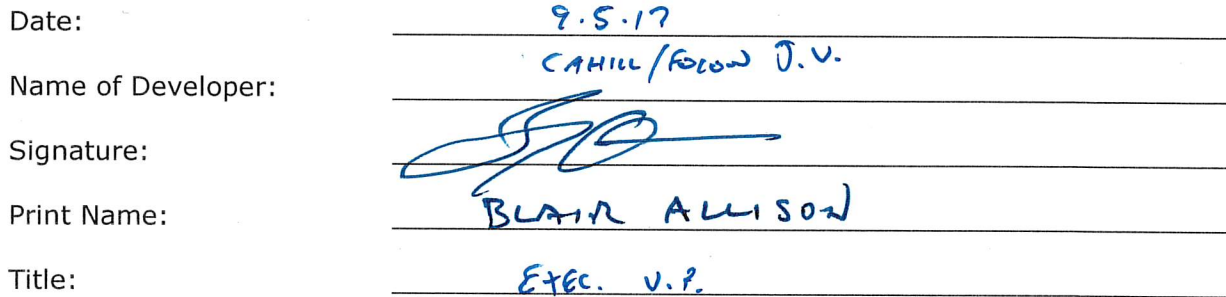 Date: 9.5.17
Name of Developer: CAHILL/FOCON J.V.
Signature:
Print Name: BLAIR ALLISON
Title: EXEC. V.P.